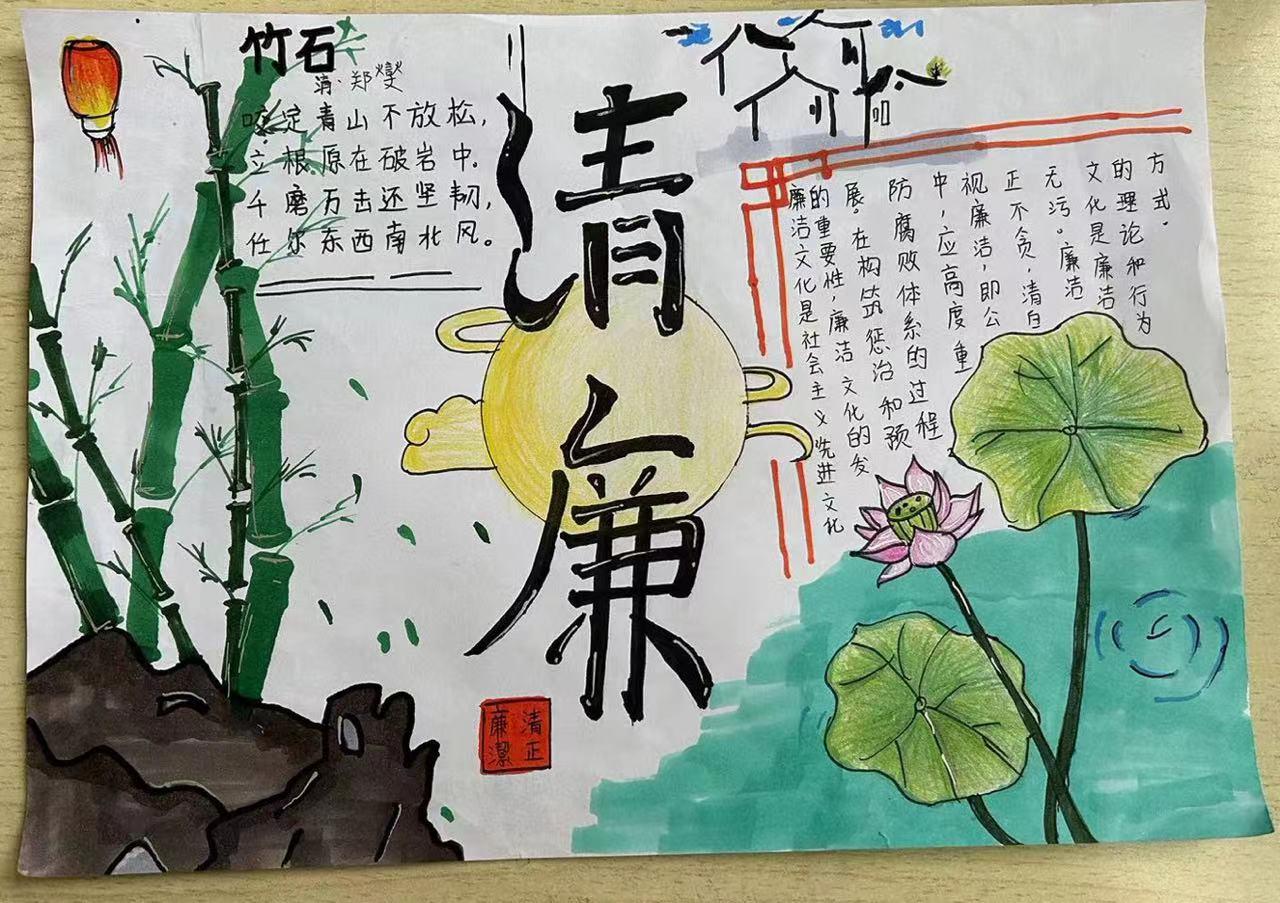 竹石
清·郑燮
咬定青山不放松,
立根原在破岩中.
千磨万击还坚韧,
任尔东西南北风。
清廉
清正
廉潔
廉洁文化是社会主义先进文化
的重要性,廉洁文化的发
展。在构筑惩治和预
防腐败体系的过程
中,应高度重
视廉洁,即公
正不贪,清白
无污。廉洁
文化是廉洁
的理论和行为
方式.